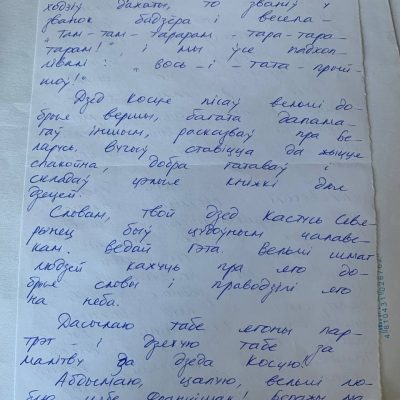 ходзіў дахаты, то званіў у
званок бадзёра і весела –
"там-там-тарарам-тара-тара-
тарам!" і мы ўсе падхоп-
лівалі: "вось-і-тата-прый-
шоў!"
Дзед Косця пісаў вельмі до-
брыя вершы, багата дапама-
гаў іншым, расказваў пра Бе-
ларусь, вучыў ставіцца да жыцця
спакойна, добра гатаваў і
складаў цэлыя кніжкі для
дзяцей.
Словам, твой дзед Кастусь Севя-
рынец быў цудоўным чалаве-
кам. Ведай гэта. Вельмі шмат
людзей кажуць пра яго до-
брыя словы і праводзілі яго
на неба.
Дасылаю табе ягоны пар-
трэт – і дзякую табе за
малітву да дзеда Косці!
Абдымаю, цалую, вельмі лю-
блю цябе, Францішак!